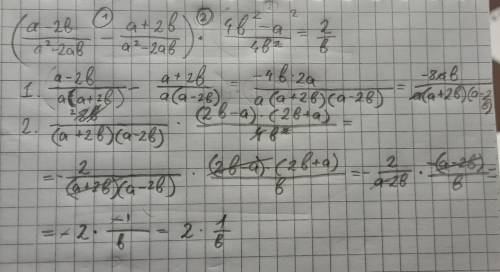 ( (a-2b)/(a²-2ab) ① - (a+2b)/(a²-2ab) ) · ② (4b²-a²)/(4b²) = 2/b
1. (a-2b)/(a(a+2b)) - (a+2b)/(a(a-2b)) = (-4b·2a)/(a(a+2b)(a-2b)) = (-8ab)/(a(a+2b)(a-2b))
2. (8b)/((a+2b)(a-2b)) · ((2b-a)·(2b+a))/(4b²) =
= - 2/((a+2b)(a-2b)) · ((2b-a)(2b+a))/b = - 2/(a-2b) · (-(a-2b))/b =
= -2 · (-1)/b = 2 · 1/b